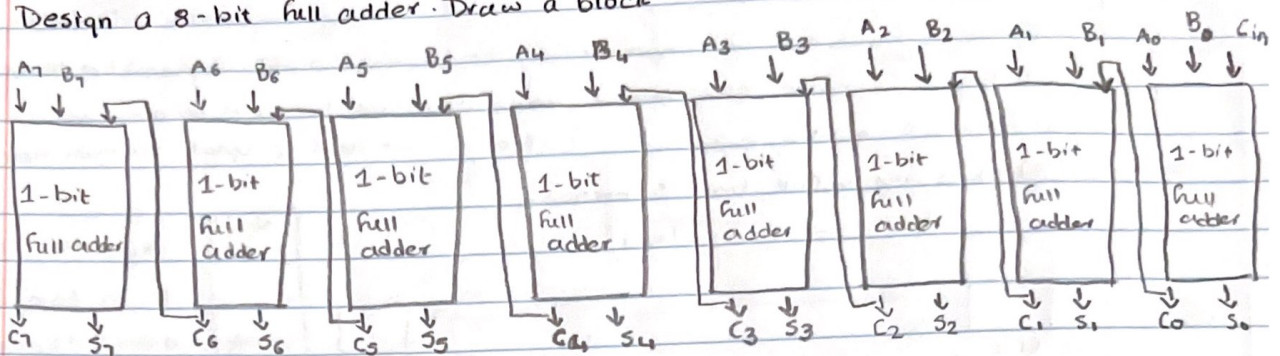 Design a 8-bit full adder. Draw a block
A7 B7 A6 B6 A5 B5 A4 B4 A3 B3 A2 B2 A1 B1 A0 B0 Cin
1-bit full adder
1-bit full adder
1-bit full adder
1-bit full adder
1-bit full adder
1-bit full adder
1-bit full adder
1-bit full adder
C7 S7 C6 S6 C5 S5 C4 S4 C3 S3 C2 S2 C1 S1 C0 S0